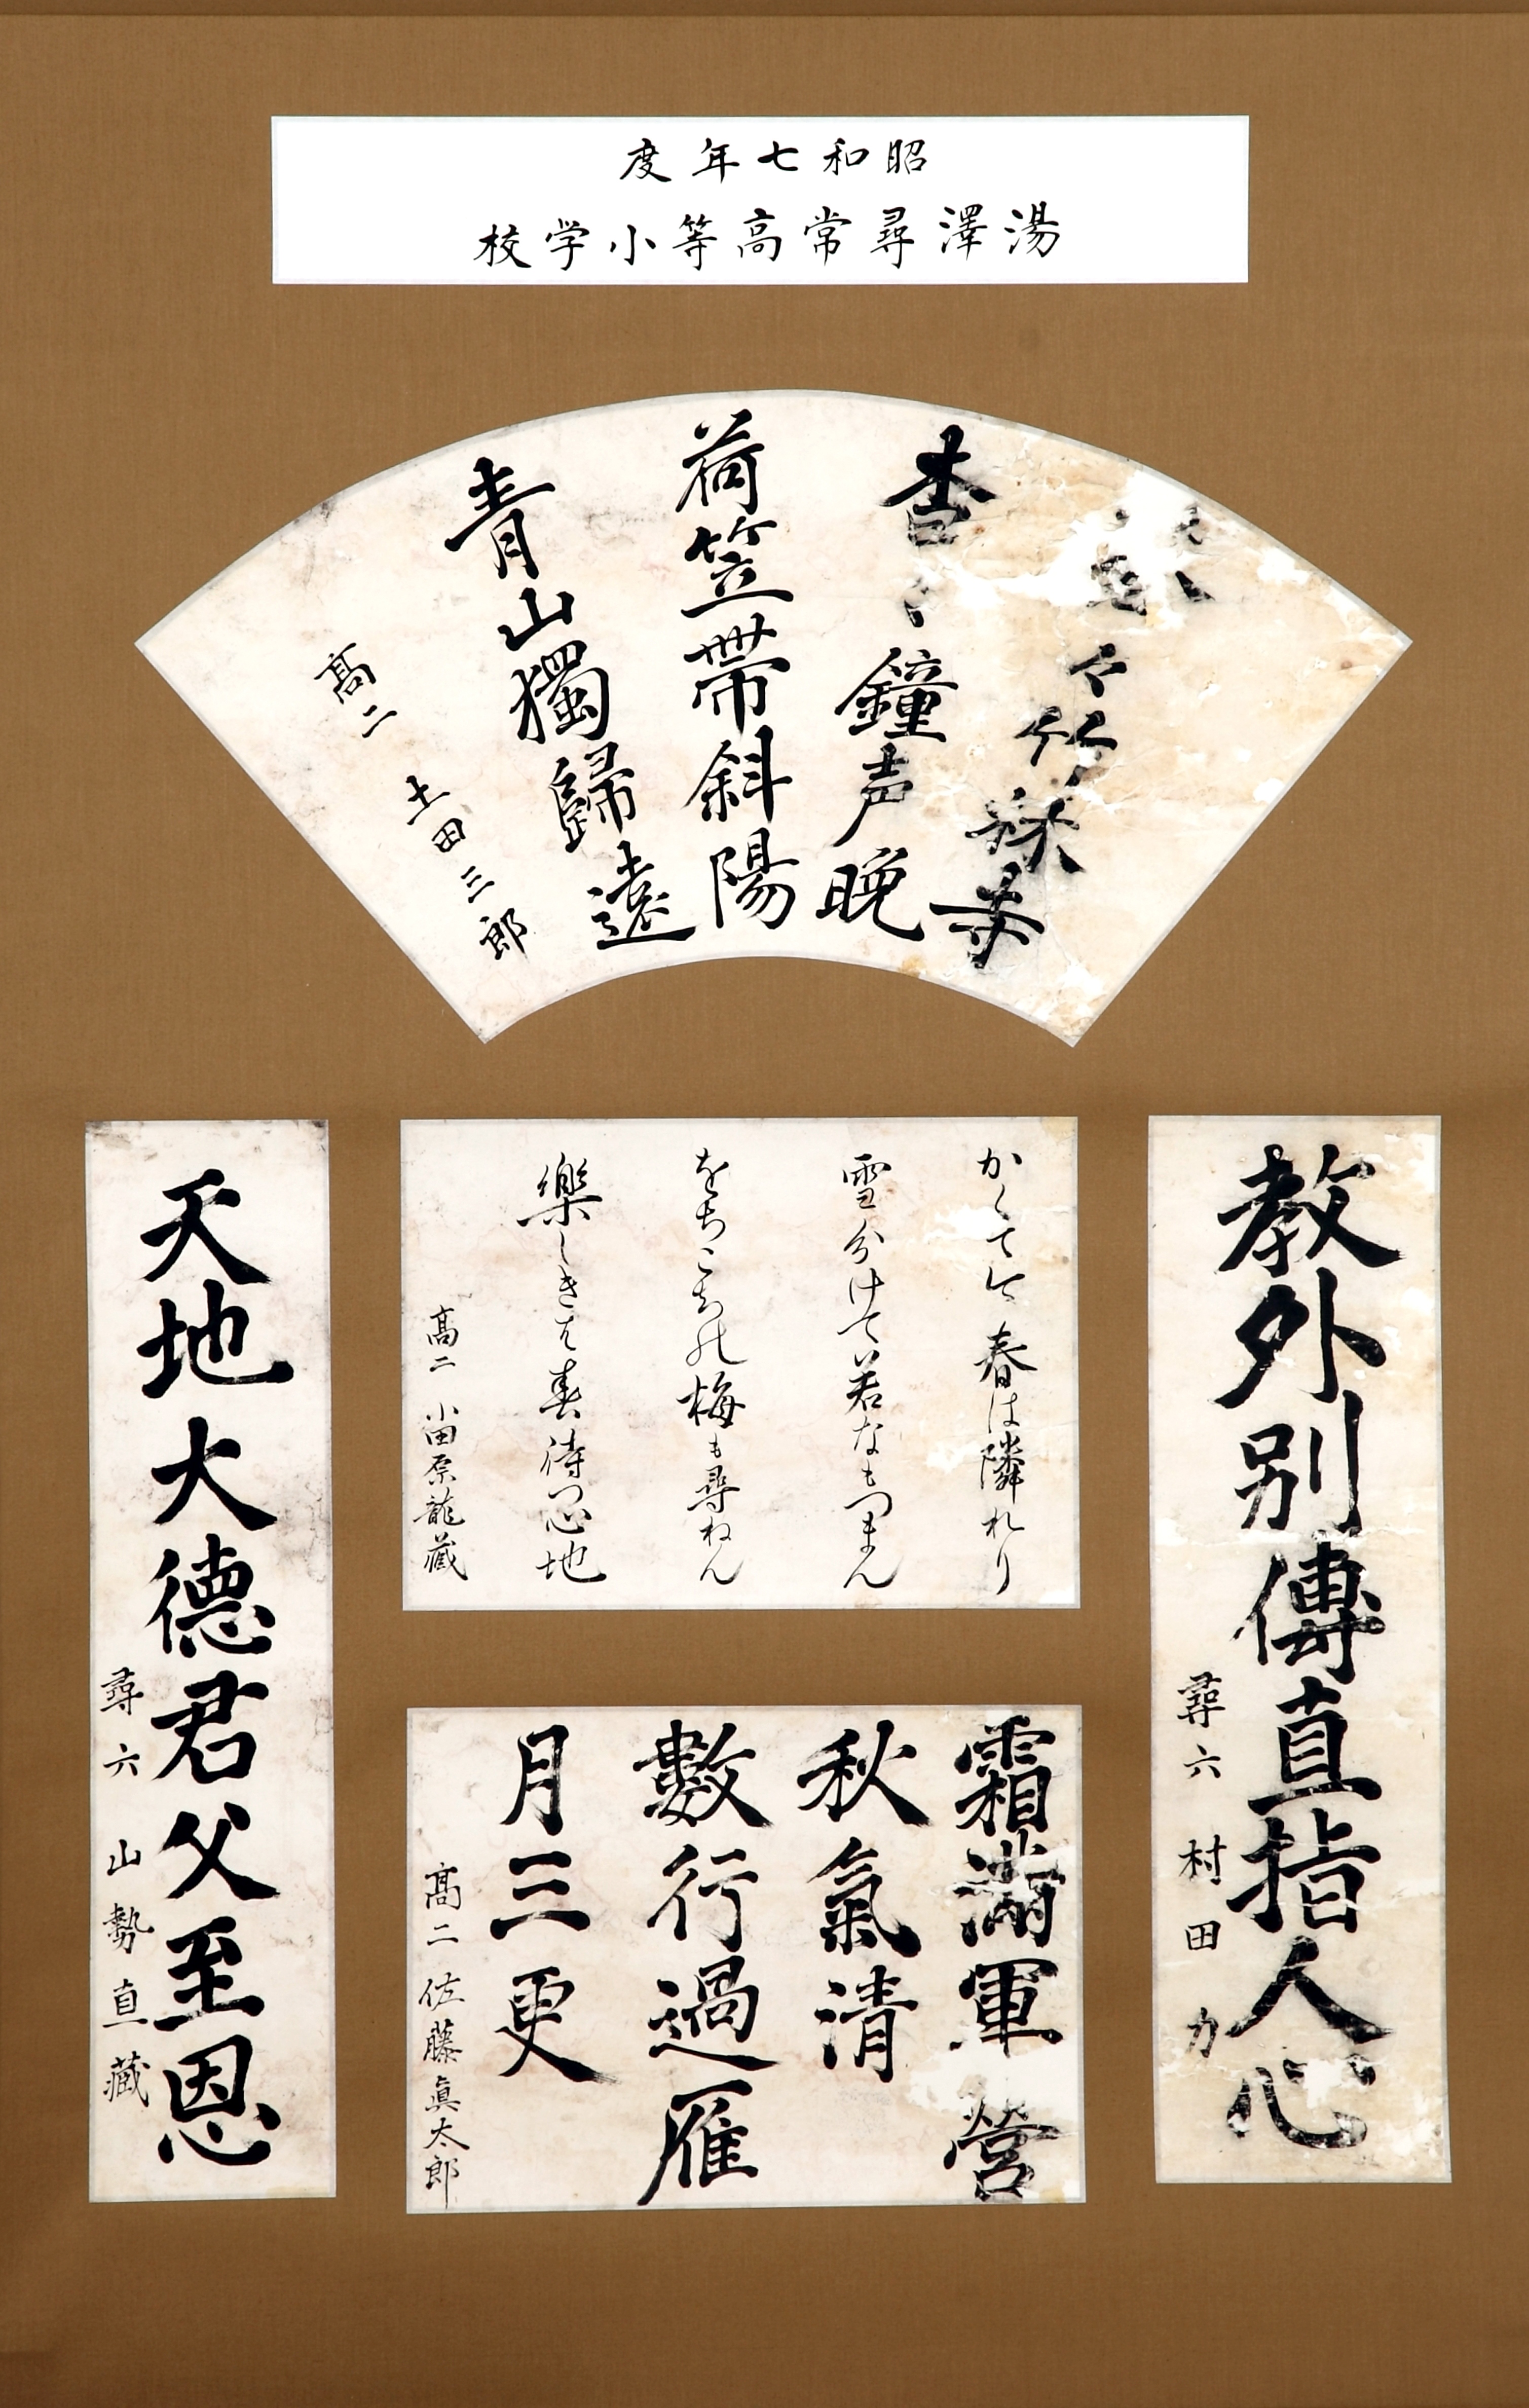 昭和七年度
湯澤尋常高等小学校
々竹林寺
杳々鐘声晩
荷笠帯斜陽
青山獨歸遠
髙二 土田三郎
教外別傳直指人心
尋六 村田力
かくて今春は隣れり
雪分けて若なもつまん
をちこちの梅も尋ねん
樂しきは春待つ心地
髙二 小田原龍藏
霜満軍營
秋氣清
數行過雁
月三更
髙二 佐藤眞太郎
天地大徳君父至恩
尋六 山勢直藏